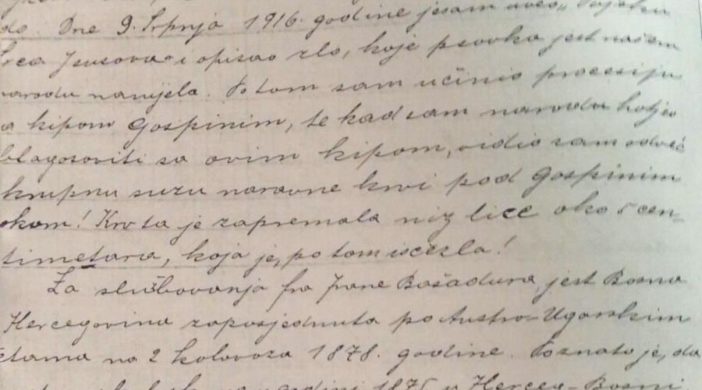 do. Dne 9. Srpnja 1916. godine jesam uveo „Vojsku
Srca Jsusova" i opisao zlo, koje psovka jest našem
narodu nanijela. Potom sam učinio procesiju
sa kipom Gospinim, te kad sam narodu htjeo
blagosoviti sa ovim kipom, vidio sam odveć
krupnu suzu naravne krvi pod Gospinim
okom! Krv ta je zapremala niz lice oko 5 cen-
timetara, koja je, po tom isčezla!
Za službovanja fra Ivane Bošadura, jest Bosna
Hercegovina zaposjednuta po Austro-Ugarskim
četama na 2 kolovoza 1878. godine. Poznato je, da
godini 1875 u Herceg-Bosni